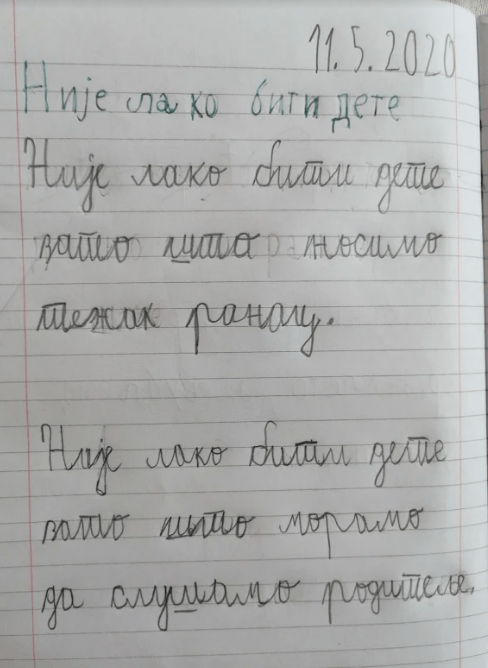 11.5.2020
Није лако бити дете
Није лако бити дете
зато што носимо
тежак ранац.
Није лако бити дете
зато што морамо
да слушамо родитеље.